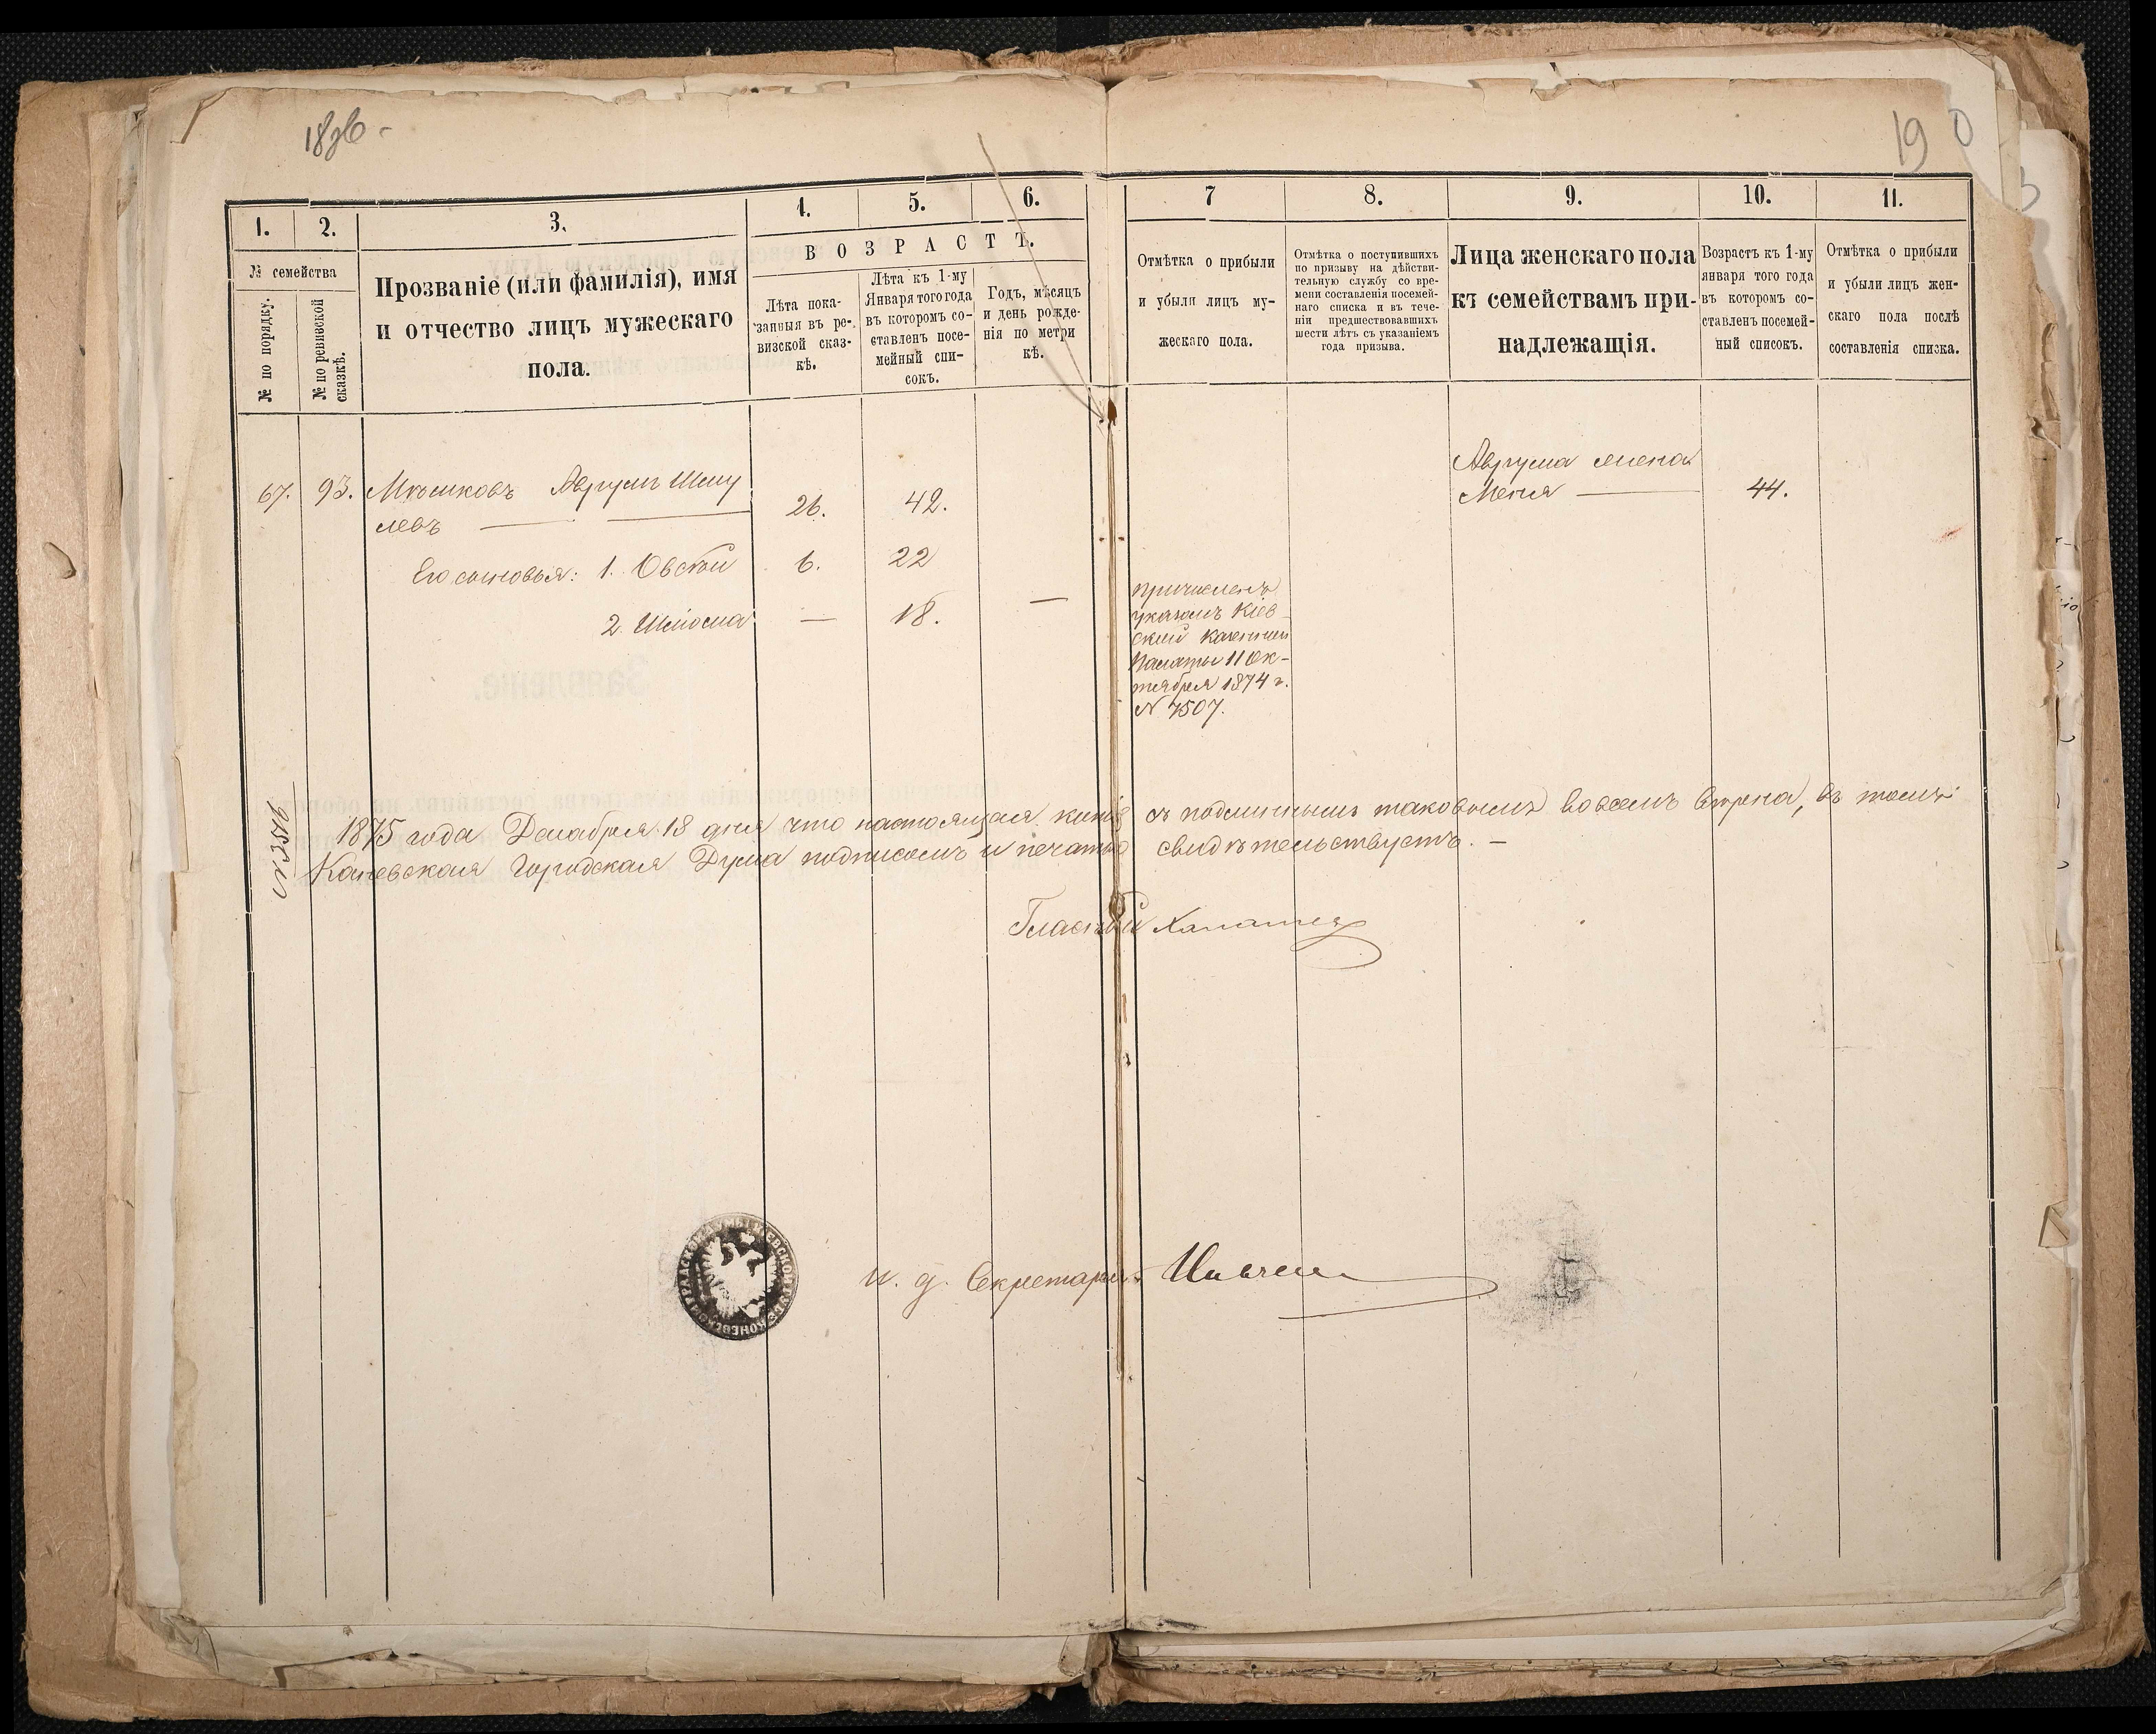 19
1.
2.
3.
4.
5.
6.
7
8.
9.
10.
11.
№ семейства
№ по порядку.
№ по ревизской
сказкѣ.
Прозваніе (или фамилія), имя
и отчество лицъ мужескаго
пола.
ВОЗРАСТЪ.
Лѣта пока-
занныя въ ре-
визской сказ-
кѣ.
Лѣта къ 1-му
Января того года
въ которомъ со-
ставленъ посе-
мейный спи-
сокъ.
Годъ, мѣсяцъ
и день рожде-
нія по метри
кѣ.
Отмѣтка о прибыли
и убыли лицъ му-
жескаго пола.
Отмѣтка о поступившихъ
по призыву на дѣйстви-
тельную службу со вре-
мени составленія посемей-
наго списка и въ тече-
ніи предшествовавшихъ
шести лѣтъ съ указаніемъ
года призыва.
Лица женскаго пола
къ семействамъ при-
надлежащія.
Возрастъ къ 1-му
января того года
въ которомъ со-
ставленъ посемей-
ный списокъ.
Отмѣтка о прибыли
и убыли лицъ жен-
скаго пола послѣ
составленія списка.
67.
93.
Аврумъ Шму
левъ
26.
42.
Аврума жена
Меня
44.
Его сыновья: 1. Овсій
6.
22
2. Шліома
—
18.
—
причисленъ
указомъ Кіев
ской Казенной
Палаты 11 Ок-
тября 1874 г.
N 7507.
1875 года Декабря 18 дня что настоящая копія съ подлиннымъ таковымъ во всемъ вѣрна, въ томъ
Каневская Городская Дума подписомъ и печатью свидѣтельствуетъ. —
Гласный
И. д. Секретаря